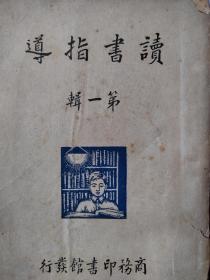 讀書指導
第一輯
商務印書館發行